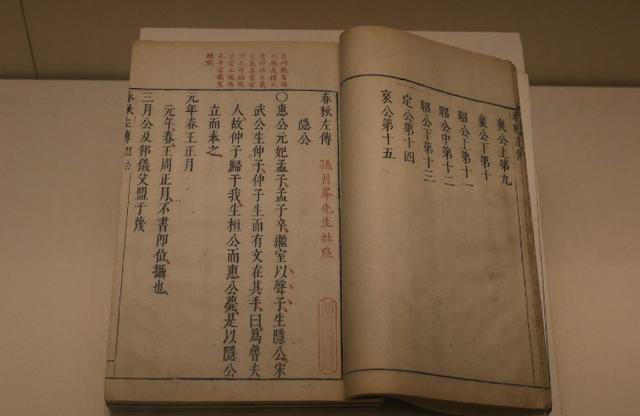 春秋左傳
襄公上第九
襄公下第十
昭公上第十一
昭公中第十二
昭公下第十三
定公第十四
哀公第十五
春秋左傳 孫月峯先生批點
隱公
○惠公元妃孟子孟子卒繼室以聲子生隱公宋
武公生仲子仲子生而有文在其手曰爲魯夫
人故仲子歸于我生桓公而惠公薨是以隱公
立而奉之
元年春王正月
元年春王周正月不書卽位攝也
三月公及邾儀父盟于蔑
春秋左傳 隱公